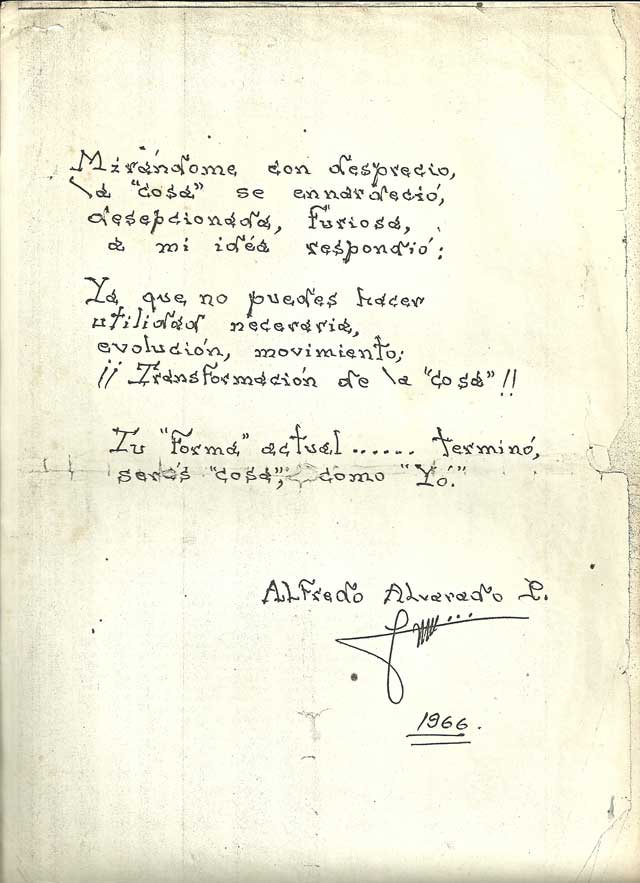 Mirándome con desprecio,
la "cosa" se ennardeció,
desepcionada, furiosa,
a mi idéa respondió:
Ya que no puedes hacer
utilidad neceraria,
evolución, movimiento;
¡¡ Transformación de la "cosa"!!
Tu "Forma" actual ...... terminó,
serás "cosa"; como "Yó."
ALfredo Alvarado L.
1966.